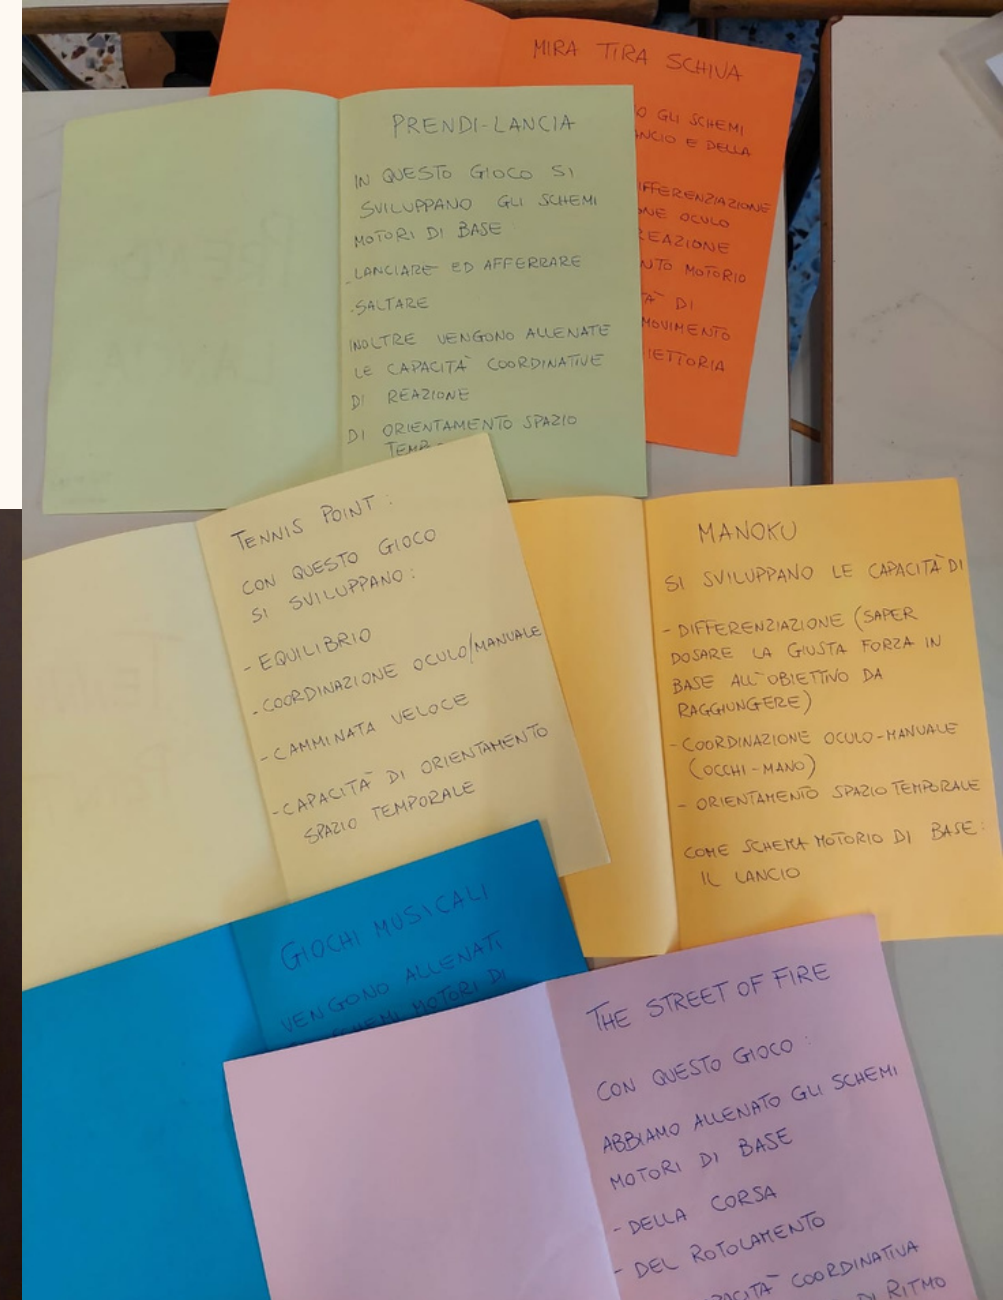 MIRA TIRA SCHIVA
GLI SCHEMI
E DELLA
OCULO
MOTORIO
DI
MOVIMENTO
PRENDI-LANCIA
IN QUESTO GIOCO SI
SVILUPPANO GLI SCHEMI
MOTORI DI BASE
-LANCIARE ED AFFERRARE
-SALTARE
INOLTRE VENGONO ALLENATE
LE CAPACITÀ COORDINATIVE
DI REAZIONE
DI ORIENTAMENTO SPAZIO
TENNIS POINT:
CON QUESTO GIOCO
SI SVILUPPANO:
- EQUILIBRIO
- COORDINAZIONE OCULO/MANUALE
- CAMMINATA VELOCE
- CAPACITÀ DI ORIENTAMENTO
SPAZIO TEMPORALE
MANOKU
SI SVILUPPANO LE CAPACITÀ DI
- DIFFERENZIAZIONE (SAPER
DOSARE LA GIUSTA FORZA IN
BASE ALL'OBIETTIVO DA
RAGGIUNGERE)
- COORDINAZIONE OCULO-MANUALE
(OCCHI-MANO)
- ORIENTAMENTO SPAZIO TEMPORALE
COME SCHEMA MOTORIO DI BASE:
IL LANCIO
GIOCHI MUSICALI
VENGONO ALLENATI
MOTORI DI
THE STREET OF FIRE
CON QUESTO GIOCO:
ABBIAMO ALLENATO GLI SCHEMI
MOTORI DI BASE
- DELLA CORSA
- DEL ROTOLAMENTO
COORDINATIVA
DI RITMO